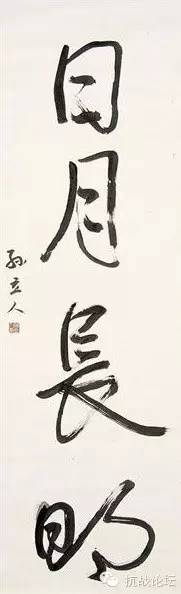 日月長明
孫立人
抗战论坛